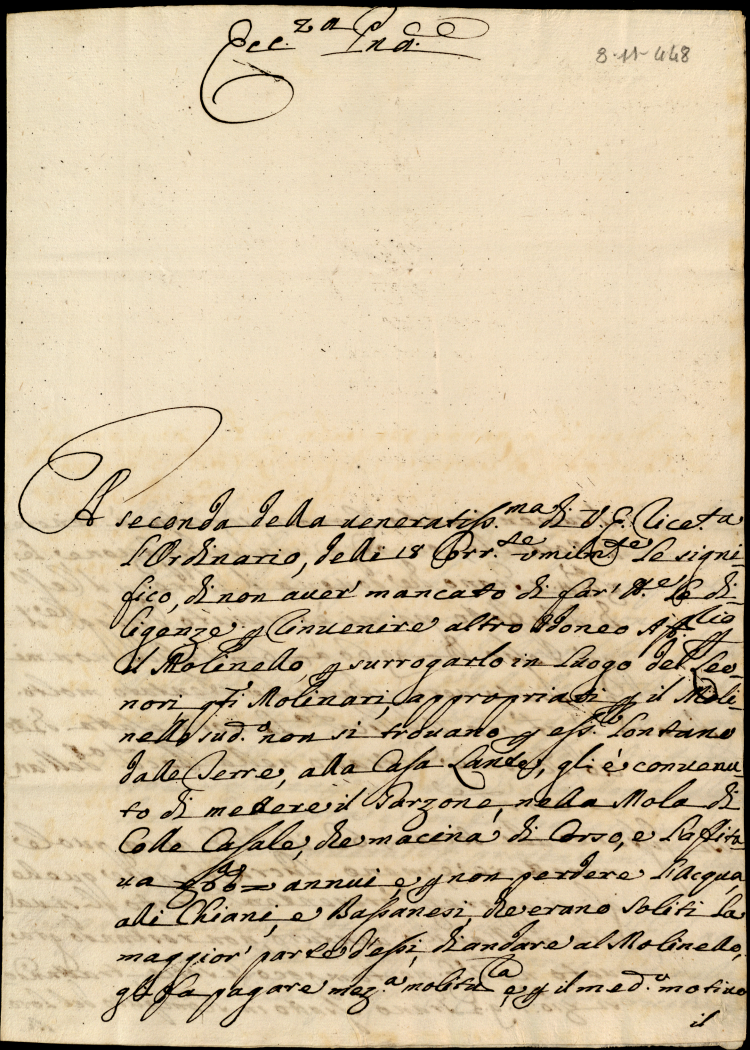 Ecc.za Pad.
8-11-448
A seconda della veneratiss.ma di V. E. riceuta
l'Ordinario, delli 18 Corr.te umilm.te Le signi-
fico, di non auer' mancato di far' Le di-
ligenze p rinuenire altro Idoneo
il Molinello, p surrogarlo in Luogo del Leo-
nori, Molinari, appropriati p il Moli-
nello sud.o non si trouano, p ess.e Lontano
dalle Terre, alla Casa Lante, gli è conuenu-
to di mettere il Garzone, nella Mola di
Colle Casale, che macina di Corso, e L'affita-
ua annui e p non perdere L'acqua,
alli Chiani, e Bassanesi, che erano soliti La
maggior' parte d'essi, di andare al Molinello,
gli fa pagare mez.a molitu.ra, e p il med.o motiuo
il